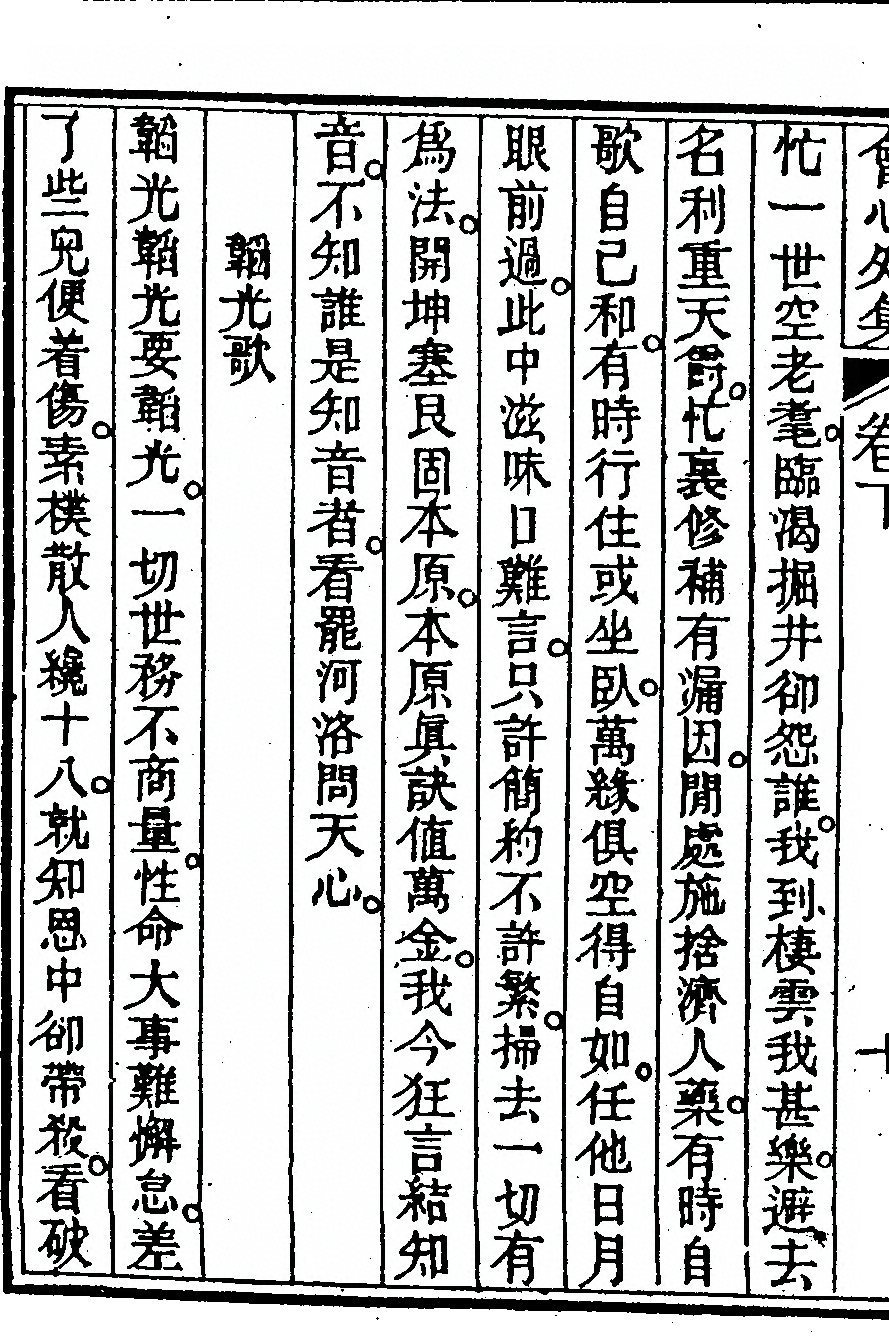 會心外集 卷下
忙一世空老耄。臨渴掘井卻怨誰。我到棲雲我甚樂。避去
名利重天爵。忙裏修補有漏因。閒處施捨濟人藥。有時自
歌自己和。有時行住或坐臥。萬緣俱空得自如。任他日月
眼前過。此中滋味口難言。只許簡約不許繁。掃去一切有
為法。開坤塞艮固本原。本原眞訣值萬金。我今狂言結知
音。不知誰是知音者。看罷河洛問天心。
韜光歌
韜光韜光要韜光。一切世務不商量。性命大事難懈怠。差
了些兒便着傷。素樸散人纔十八。就知恩中卻帶殺。看破